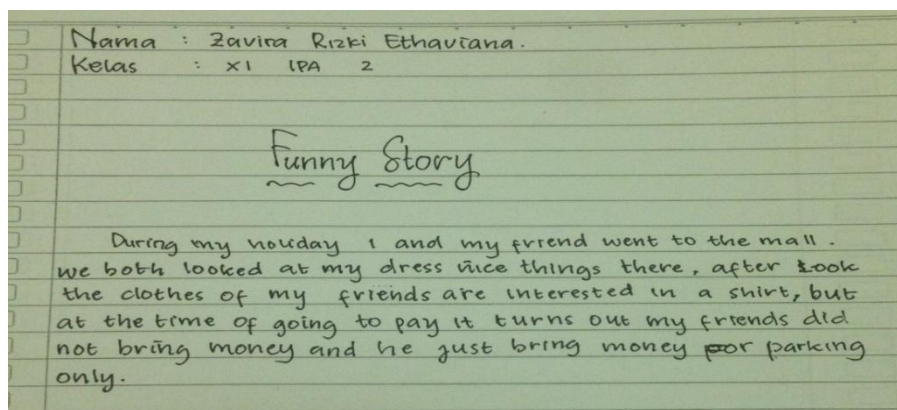 Nama : Zavira Rizki Ethaviana.
Kelas : XI IPA 2
Funny Story
During my holiday I and my friend went to the mall.
we both looked at my dress nice things there, after look
the clothes of my friends are interested in a shirt, but
at the time of going to pay it turns out my friends did
not bring money and he just bring money for parking
only.